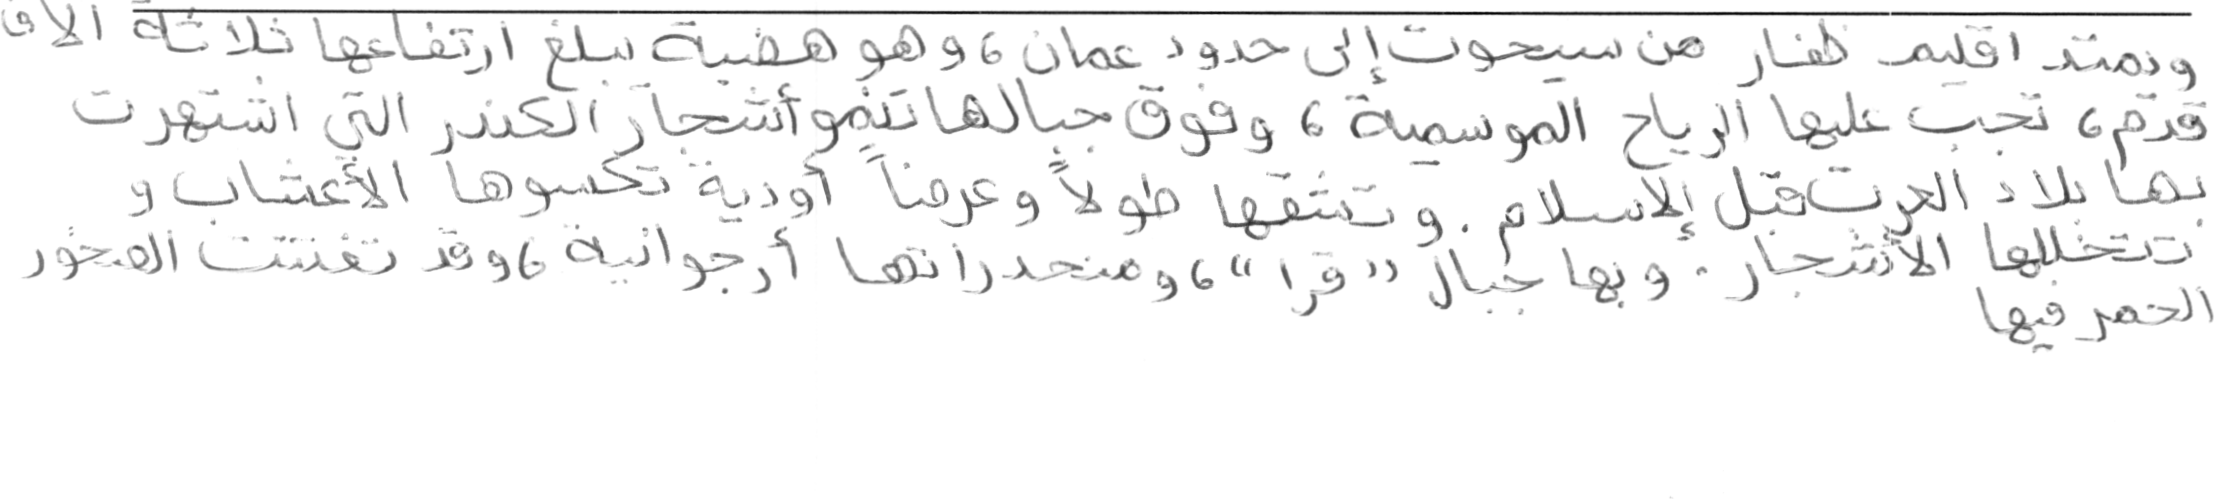 ويمتد اقليم ظفار من سيحوت إلى حدود عمان، وهو هضبة يبلغ ارتفاعها ثلاثة آلاف
قدم، تجب عليها الرياح الموسمية، وفوق جبالها تنمو أشجار الكندر التي اشتهرت
بها بلاد العرب قبل الإسلام. وتشقها طولاً وعرضاً أودية تكسوها الأعشاب و
تتخللها الأشجار. وبها جبال "قرا"، ومنحدراتها أرجوانية، وقد تفتتت الصخور
الحمر فيها